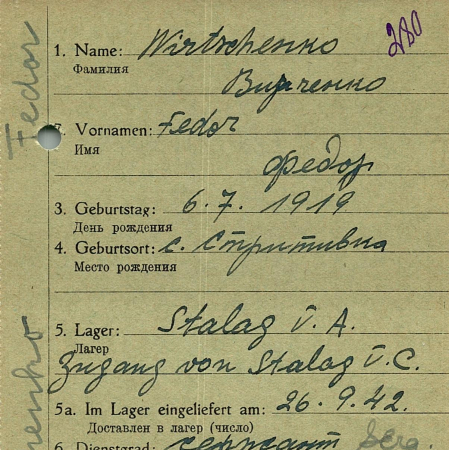 280
1. Name: Wirtschenko
Фамилия
Вирченко
2. Vornamen: Fedor
Имя
Федор
3. Geburtstag: 6. 7. 1919
День рождения
4. Geburtsort: с. Стритивка
Место рождения
5. Lager: Stalag V. A.
Лагер
Zugang von Stalag V. C.
5a. Im Lager eingeliefert am: 26. 9. 42.
Доставлен в лагер (число)
6. Dienstgrad: сержант Serg.
Fedor
enko